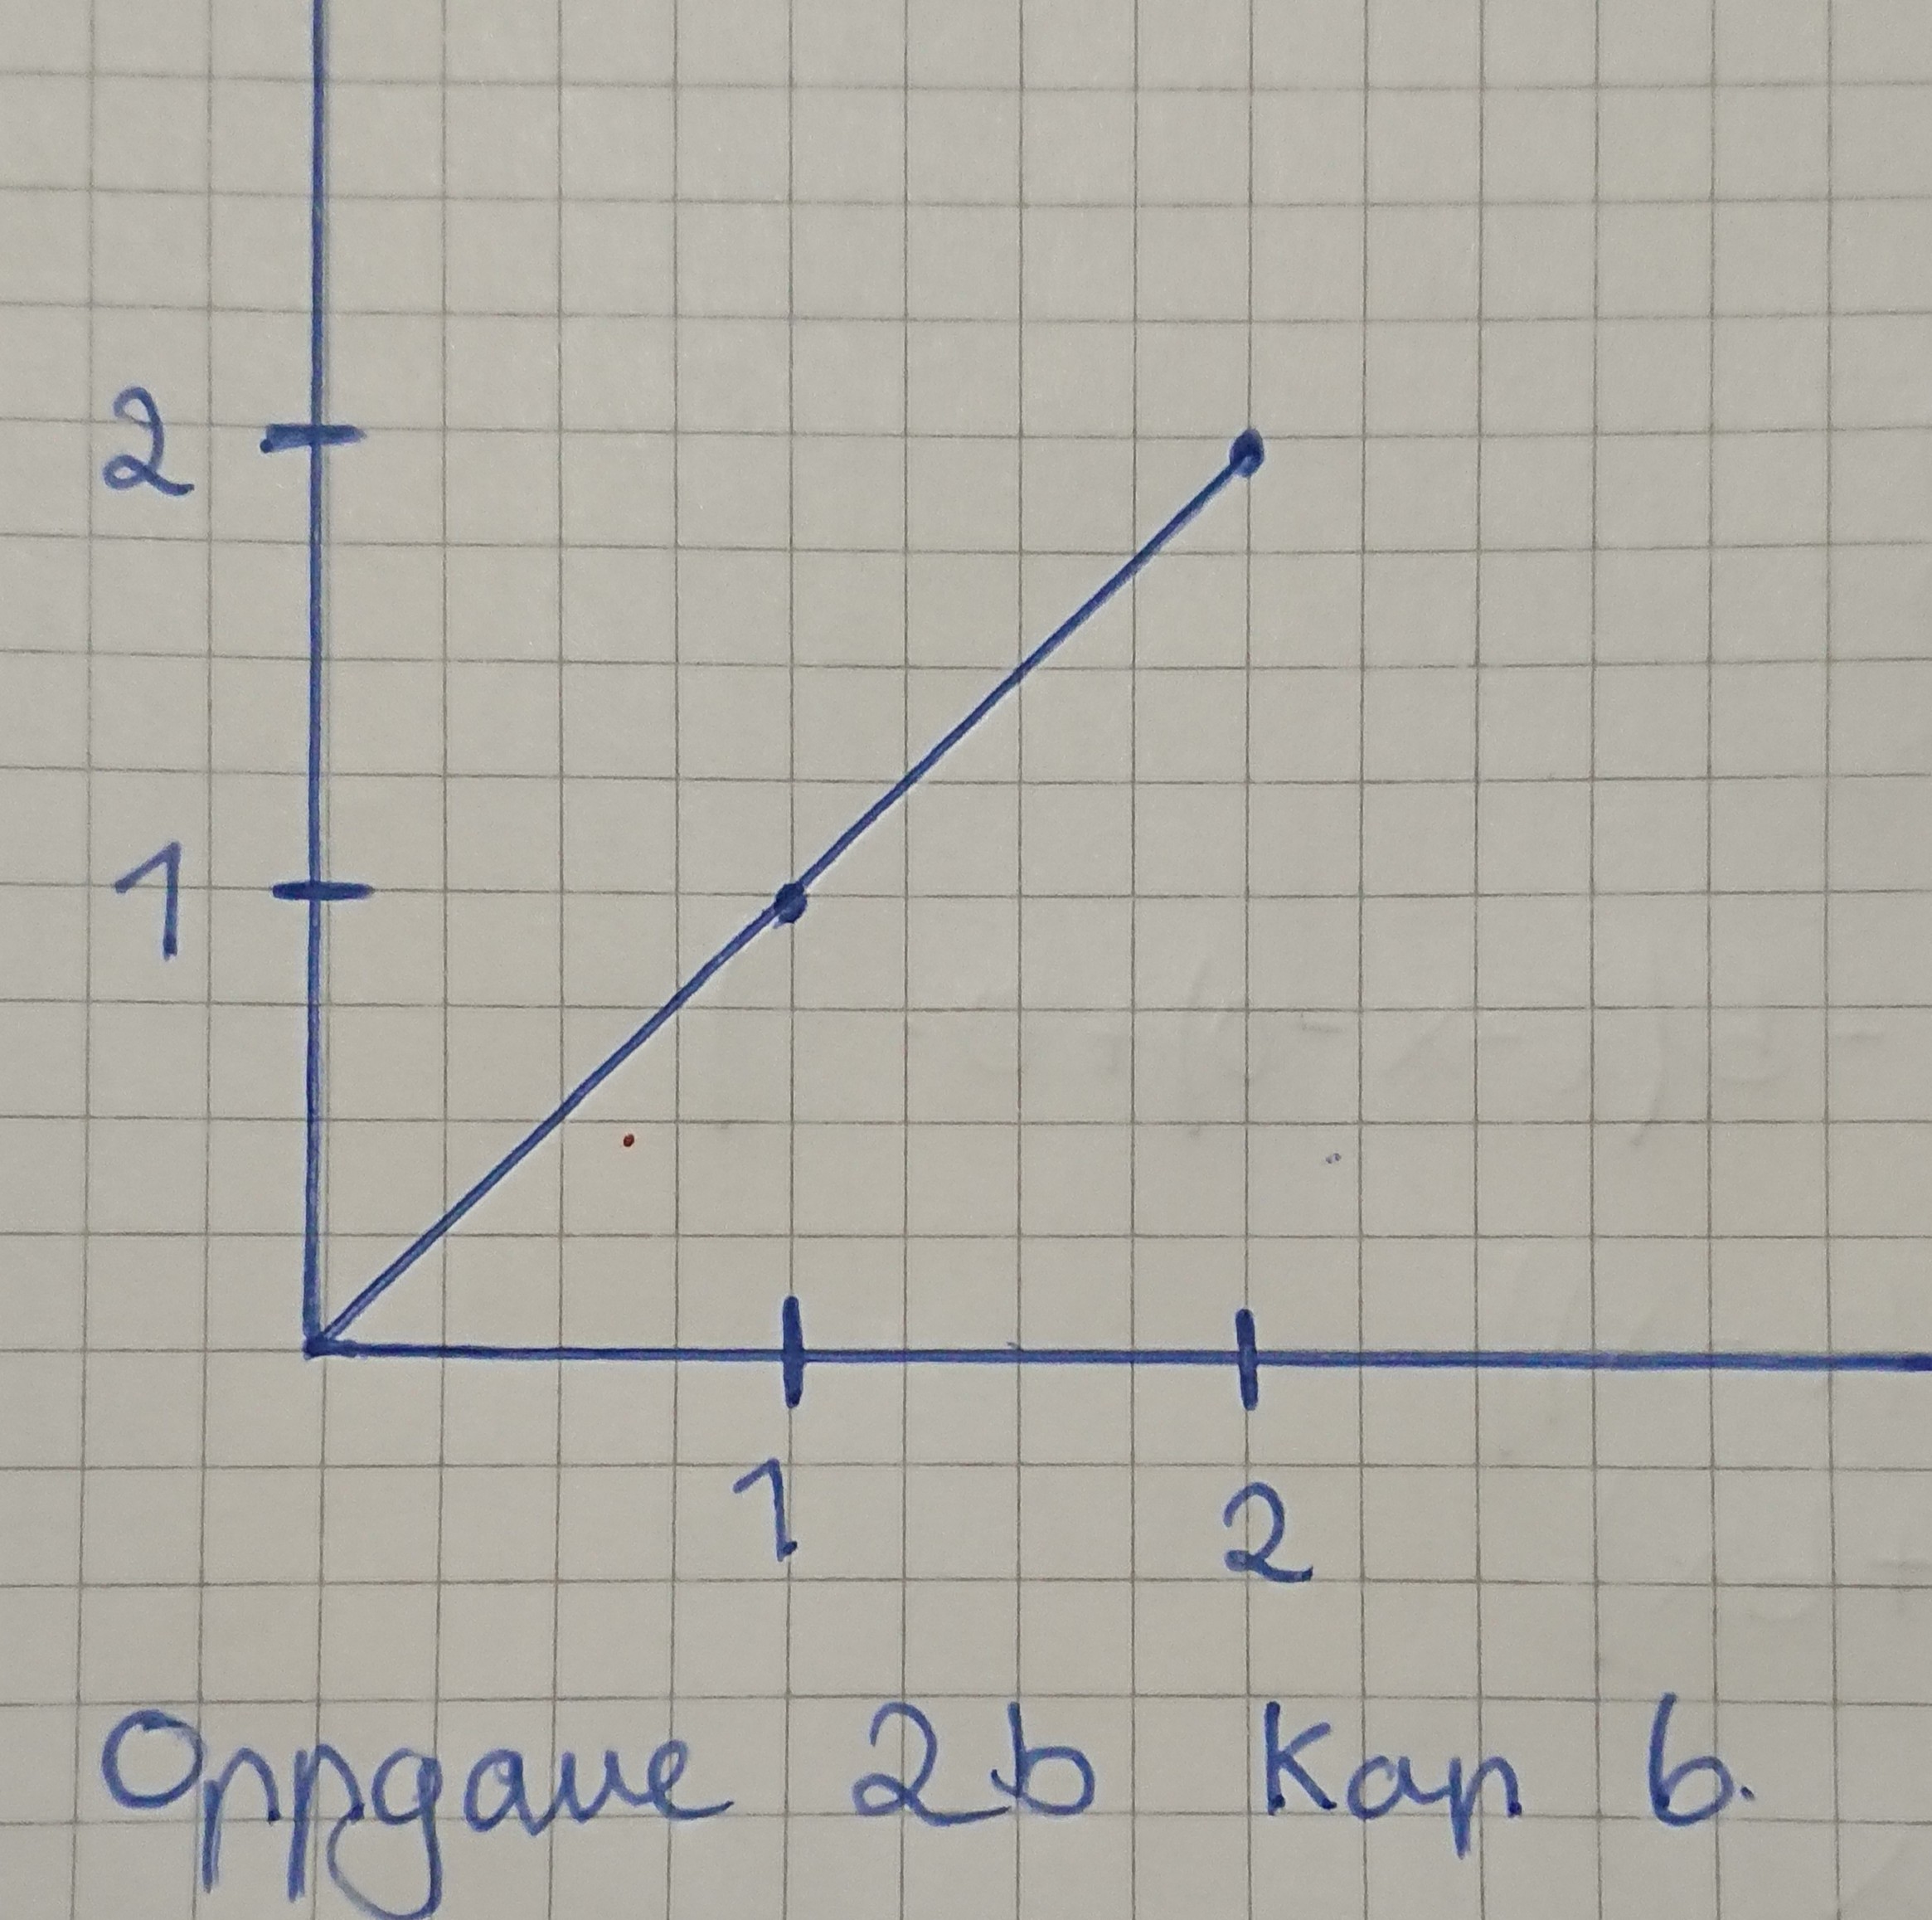 2
1
1 2
Oppgave 2b Kap 6.